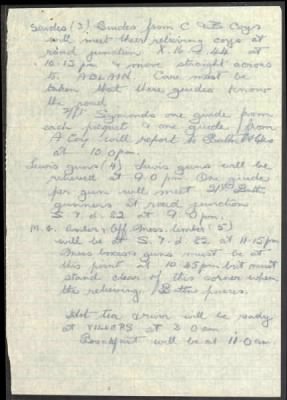 Guides (3) Guides from C & D Coys
will meet their relieving coys at
road junction X. 16. d. 44 at
10.15 pm & move straight across
to ADLAIN Care must be
taken that these guides know
the road
Symonds one guide from
each piquet & one guide from
A Coy will report to
at 10.0 pm.
Lewis guns (4) Lewis guns will be
relieved at 9.0 pm One guide
per gun will meet 21st Battn
gunners at road junction
S. 7. d. 82 at 9.0 pm.
M. G. limbers, Off. Mess. limber (5)
will be at S. 7. d. 82 at 11.15 pm
Mess boxes & guns must be at
this point at 10.45 pm but must
stand clear of this corner when
the relieving Battn passes.
Hot tea will be ready
at VILLERS at 3.0 am
Breakfast will be at 11.0 am.